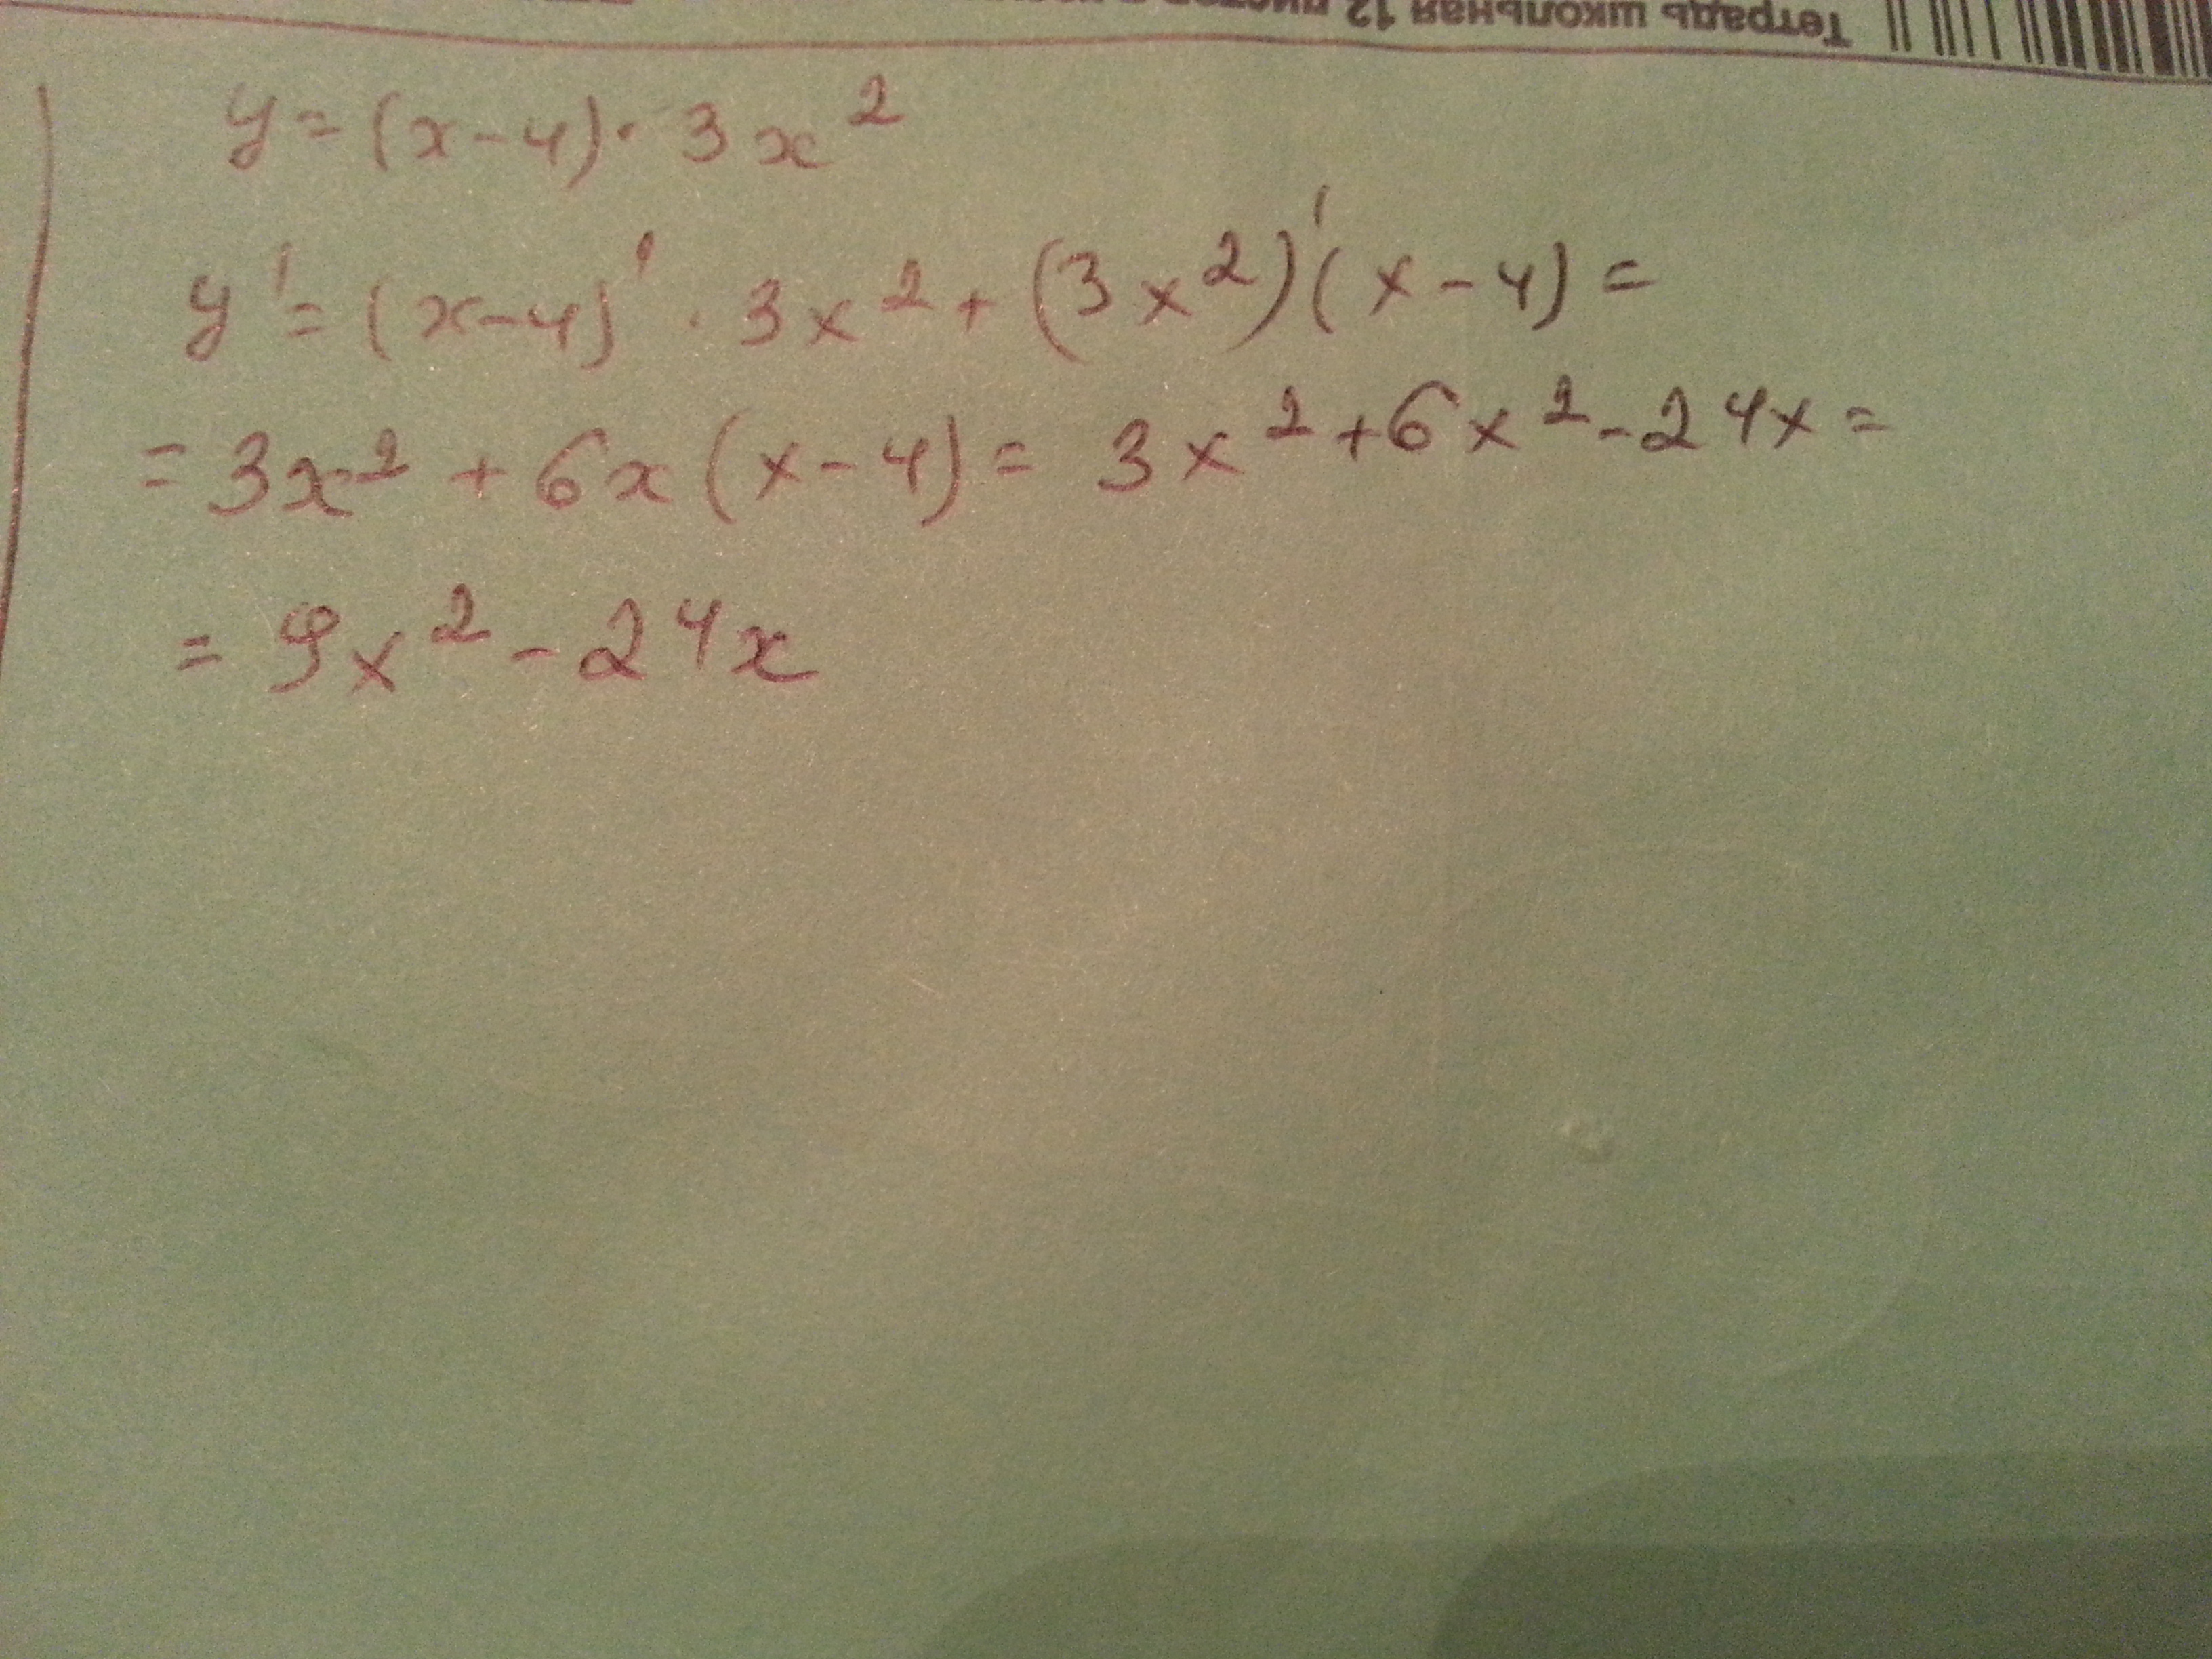 Тетрадь школьная 12
y = (x-4) · 3x²
y' = (x-4)' · 3x² + (3x²)'(x-4) =
= 3x² + 6x(x-4) = 3x² + 6x² - 24x =
= 9x² - 24x